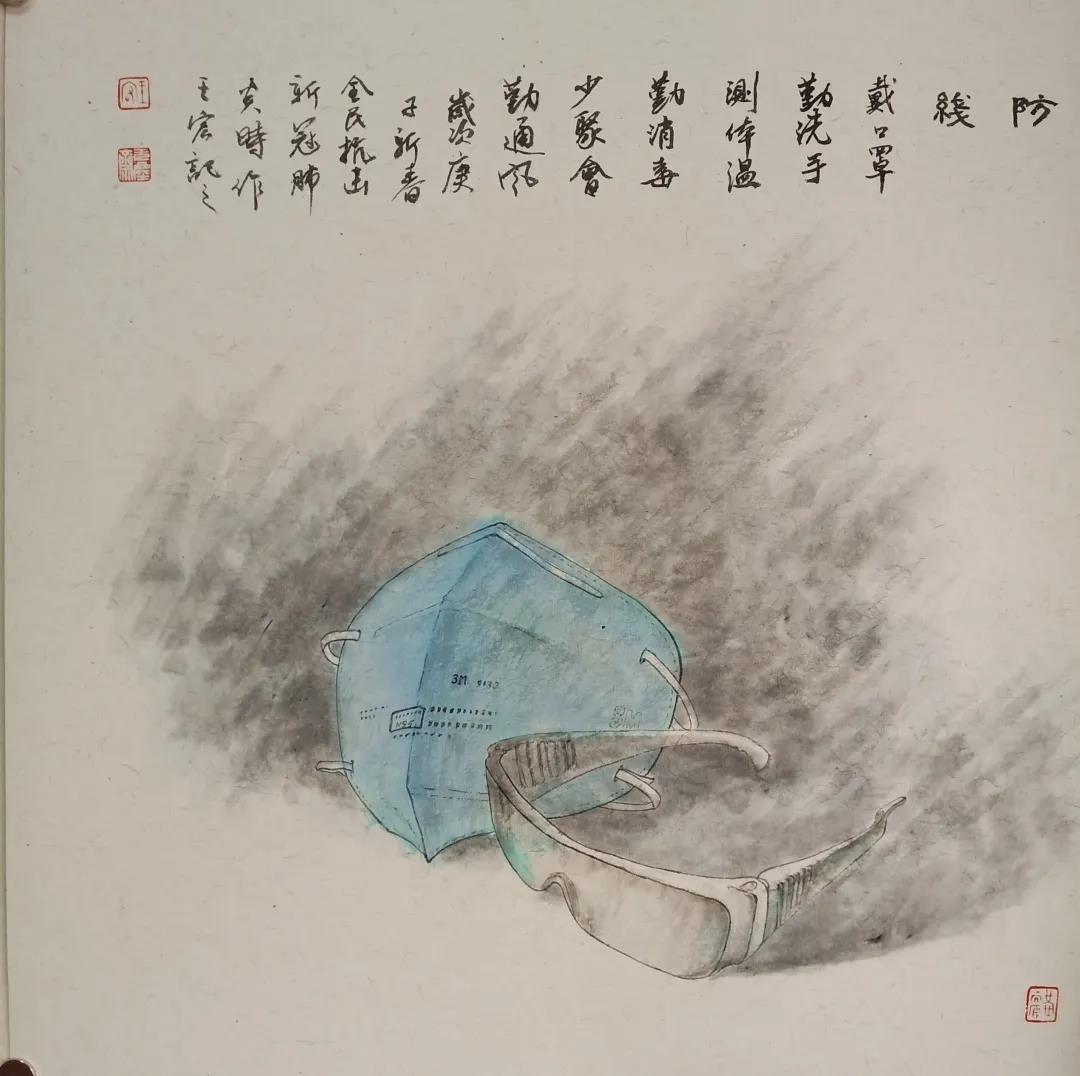 防
綫
戴口罩
勤洗手
測体温
勤消毒
少聚會
勤通风
歲次庚
子新春
全民抗击
新冠肺
炎時作
王宏記之
3M 9132
N95
3M